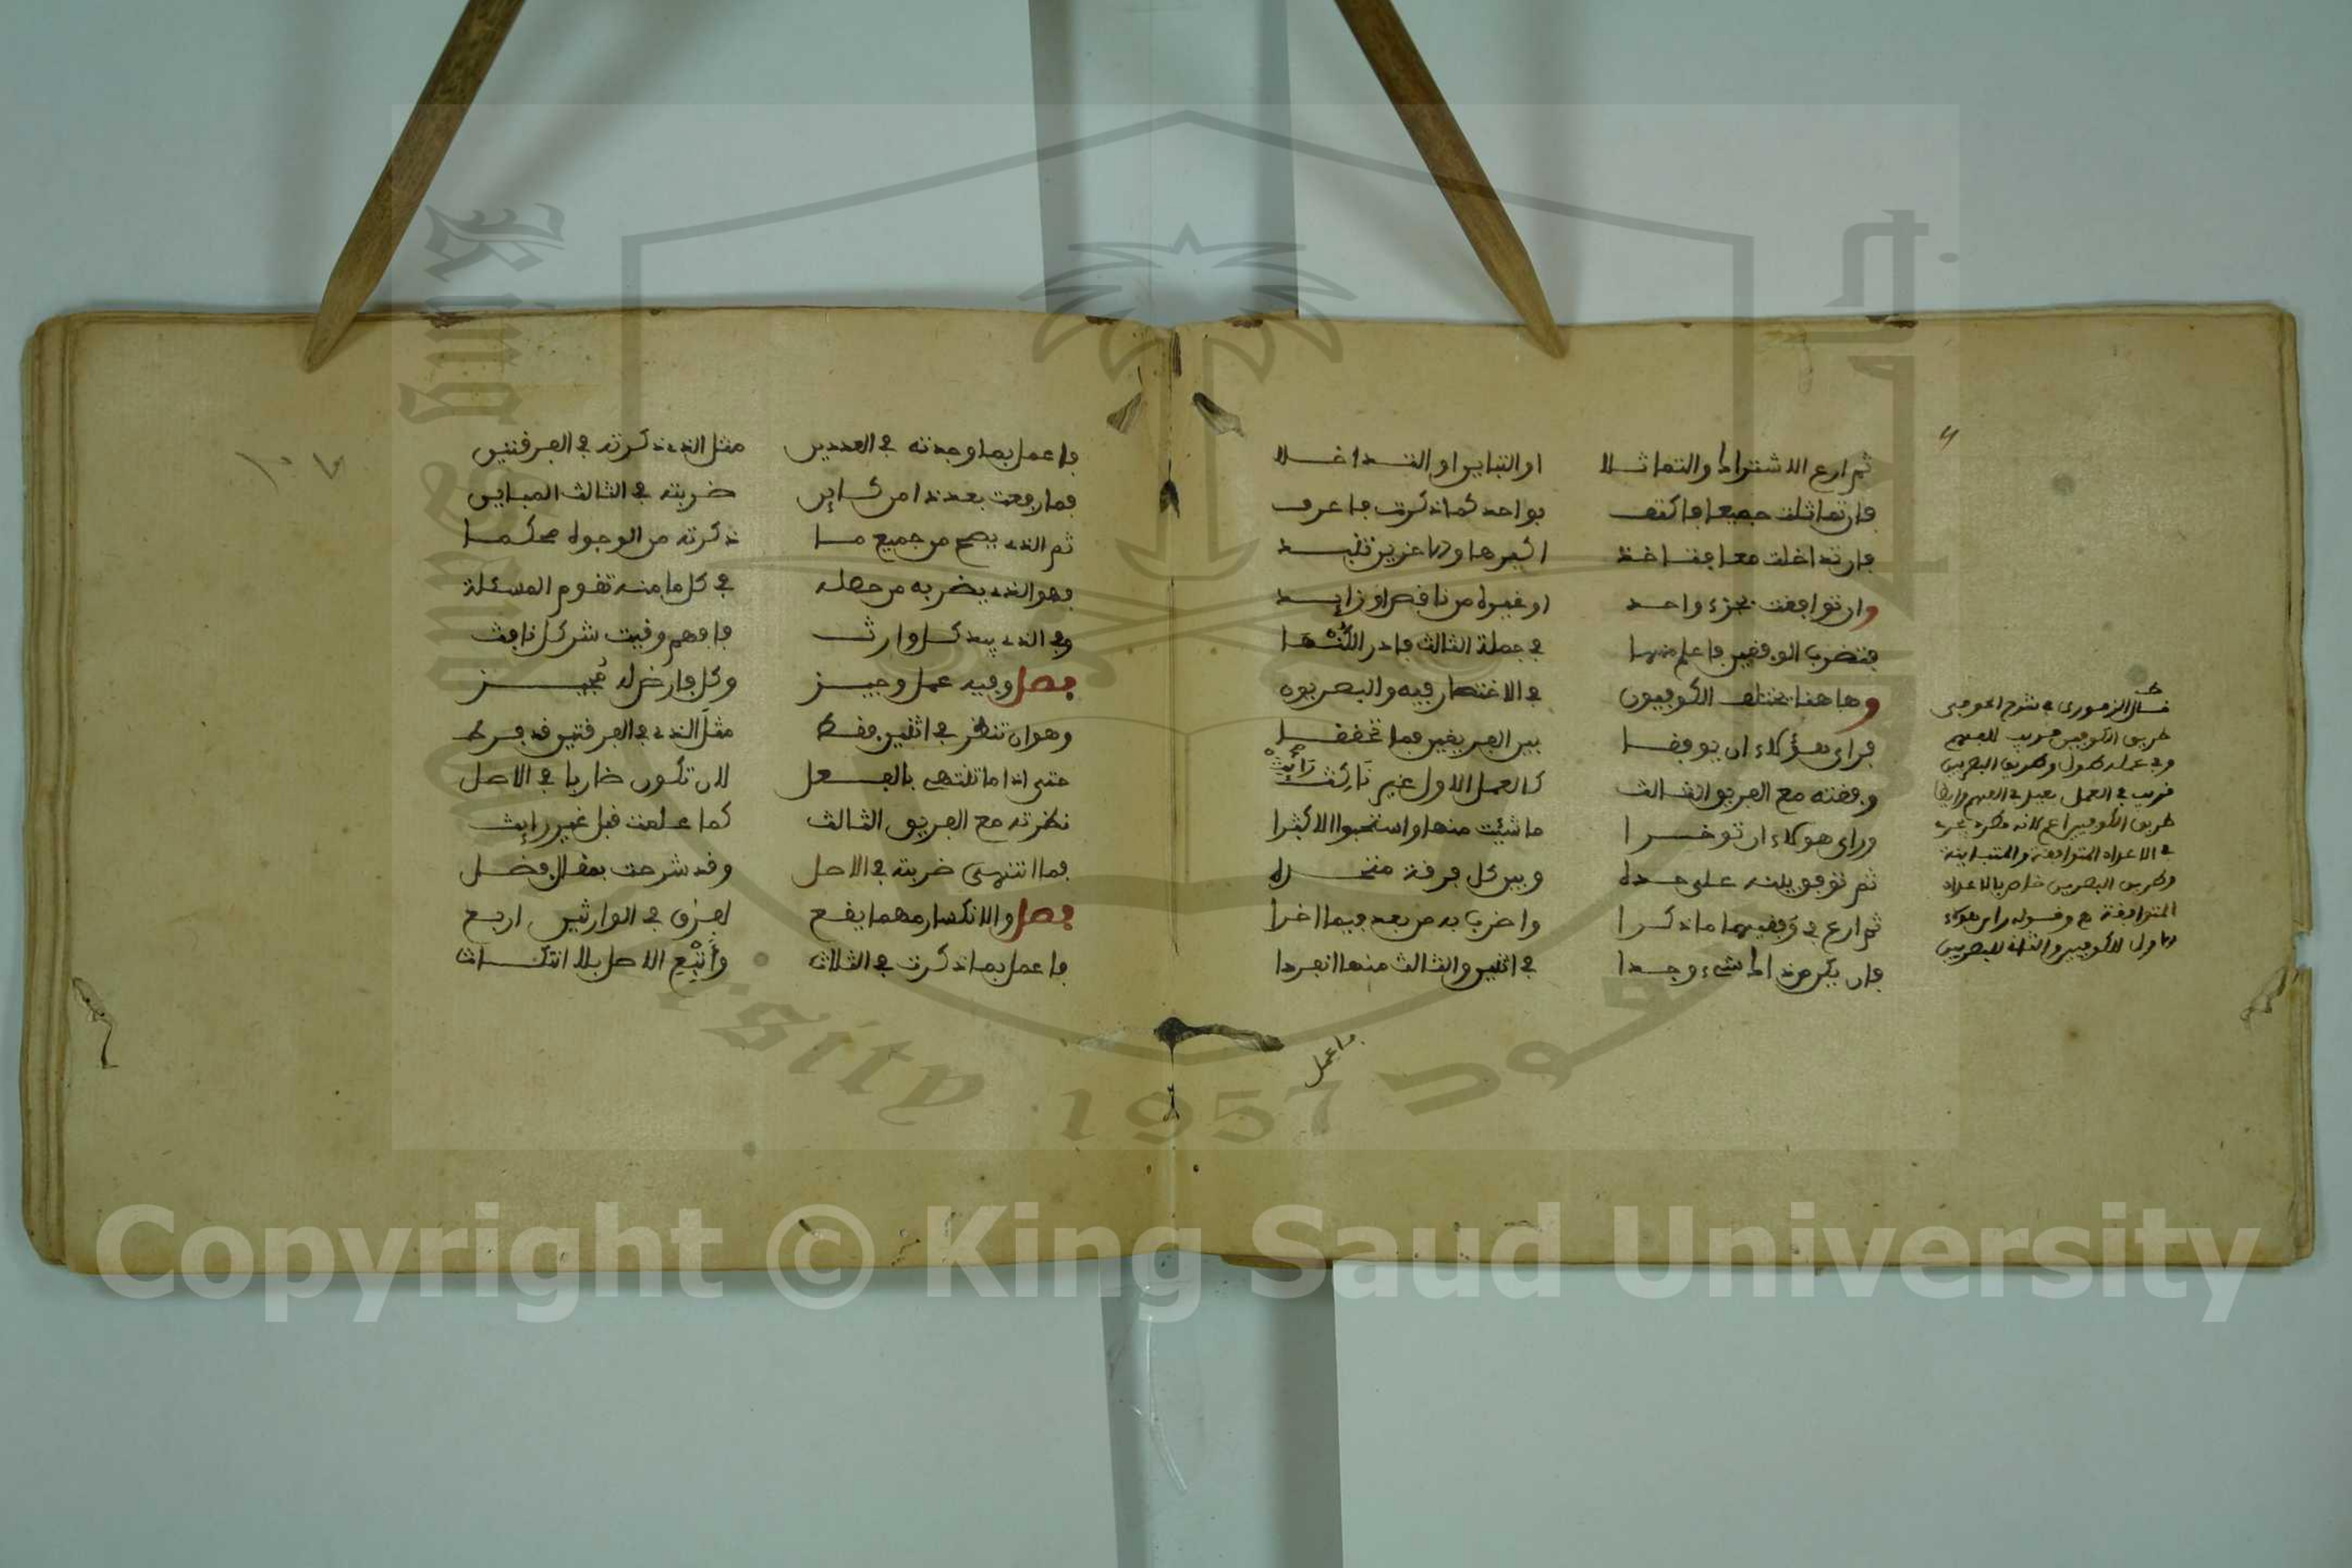 ثم ارع الاشتراك والتماثلا او التباين او التداخلا
فان تماثلت جميعا فاكتف بواحد كما ذكرت فاعرف
فان تداخلت معا فقد اخذ اكبرها
وان توافقت بجزء واحد او غيره من ناقص او زايد
فتضرب الوفقين فاعلم منهما في جملة الثالث فادر الكنه
وها هنا يختلف الكوفيون في الاختصار فيه والبصريون
فراى هؤلاء ان يوفقا بين الفريقين فما تحققا
وفقته مع الفريق الثالث كالعمل الاول غير
وراى هولاء ان توخرا ما شئت منها واستحبوا الاكثرا
ثم توفق بينه على حده وبين كل فرقة منفرده
ثم ارع في وفقيهما ما ذكرا واضرب به من بعد فيما اخرا
فان يكن ذاك شيء وجدا في اثنين والثالث منها انفردا
قال الزموري في شرح الحوفي
طريق الكوفيين قريب للفهم
وفي عمله طول وطريق البصريين
قريب في العمل بعيد في الفهم وايضا
طريق الكوفيين اعم لانه يجري
في الاعداد المتوافقة والمتباينة
وطريق البصريين خاص بالاعداد
المتوافقة وقوله راى هولاء
الاول للكوفيين والثاني للبصريين
فاعمل
فاعمل بما وجدته في العددين مثل الذي ذكرته في الفرقتين
فما رفعت بعد ذا من كاين ضربته في الثالث المباين
ثم الذي يصح من جميع ما ذكرته من الوجوه محكما
فهو الذي يضرب من حصله في كل ما منه تقوم المسئلة
وفي الذي بيد كل وارث فافهم وقيت شر كل نافث
فصل وفيه عمل وجيز وكل فارض له مجيز
وهو ان تنظر في اثنين فقط مثل الذي في الفرقتين قد فرط
حتى اذا ما تنتهي بالفعل لان تكون ضاربا في الاصل
نظرته مع الفريق الثالث كما علمت قبل غير رايث
فما انتهى ضربته في الاصل وقد شرحت بمقال فصل
فصل والانكسار مهما يقع لفرق في الوارثين اربع
فاعمل بما ذكرت في الثلاث واتبع الاصل بلا انتكاث
Copyright © King Saud University
1957